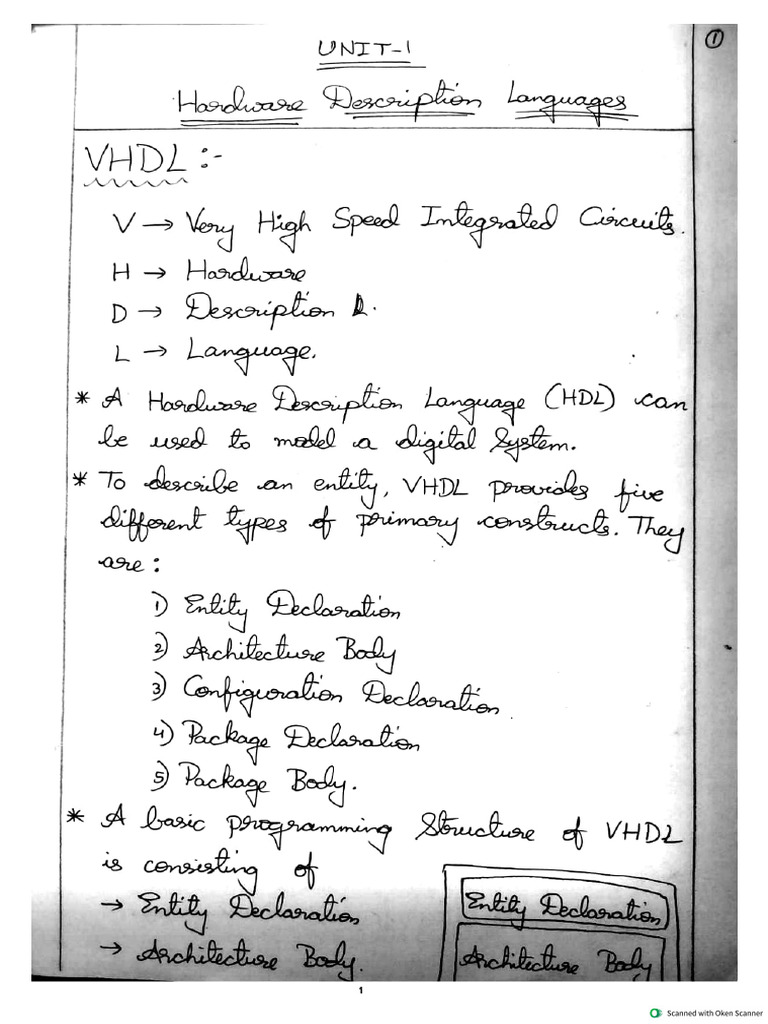 ①
UNIT-1
Hardware Description Languages
VHDL :-
V → Very High Speed Integrated Circuits.
H → Hardware
D → Description L.
L → Language.
* A Hardware Description Language (HDL) can
be used to model a digital System.
* To describe an entity, VHDL provides five
different types of primary constructs. They
are :
1) Entity Declaration
2) Architecture Body
3) Configuration Declaration
4) Package Declaration
5) Package Body.
* A basic programming Structure of VHDL
is consisting of
→ Entity Declaration
→ Architecture Body.
Entity Declaration
Architecture Body
1
Scanned with Oken Scanner